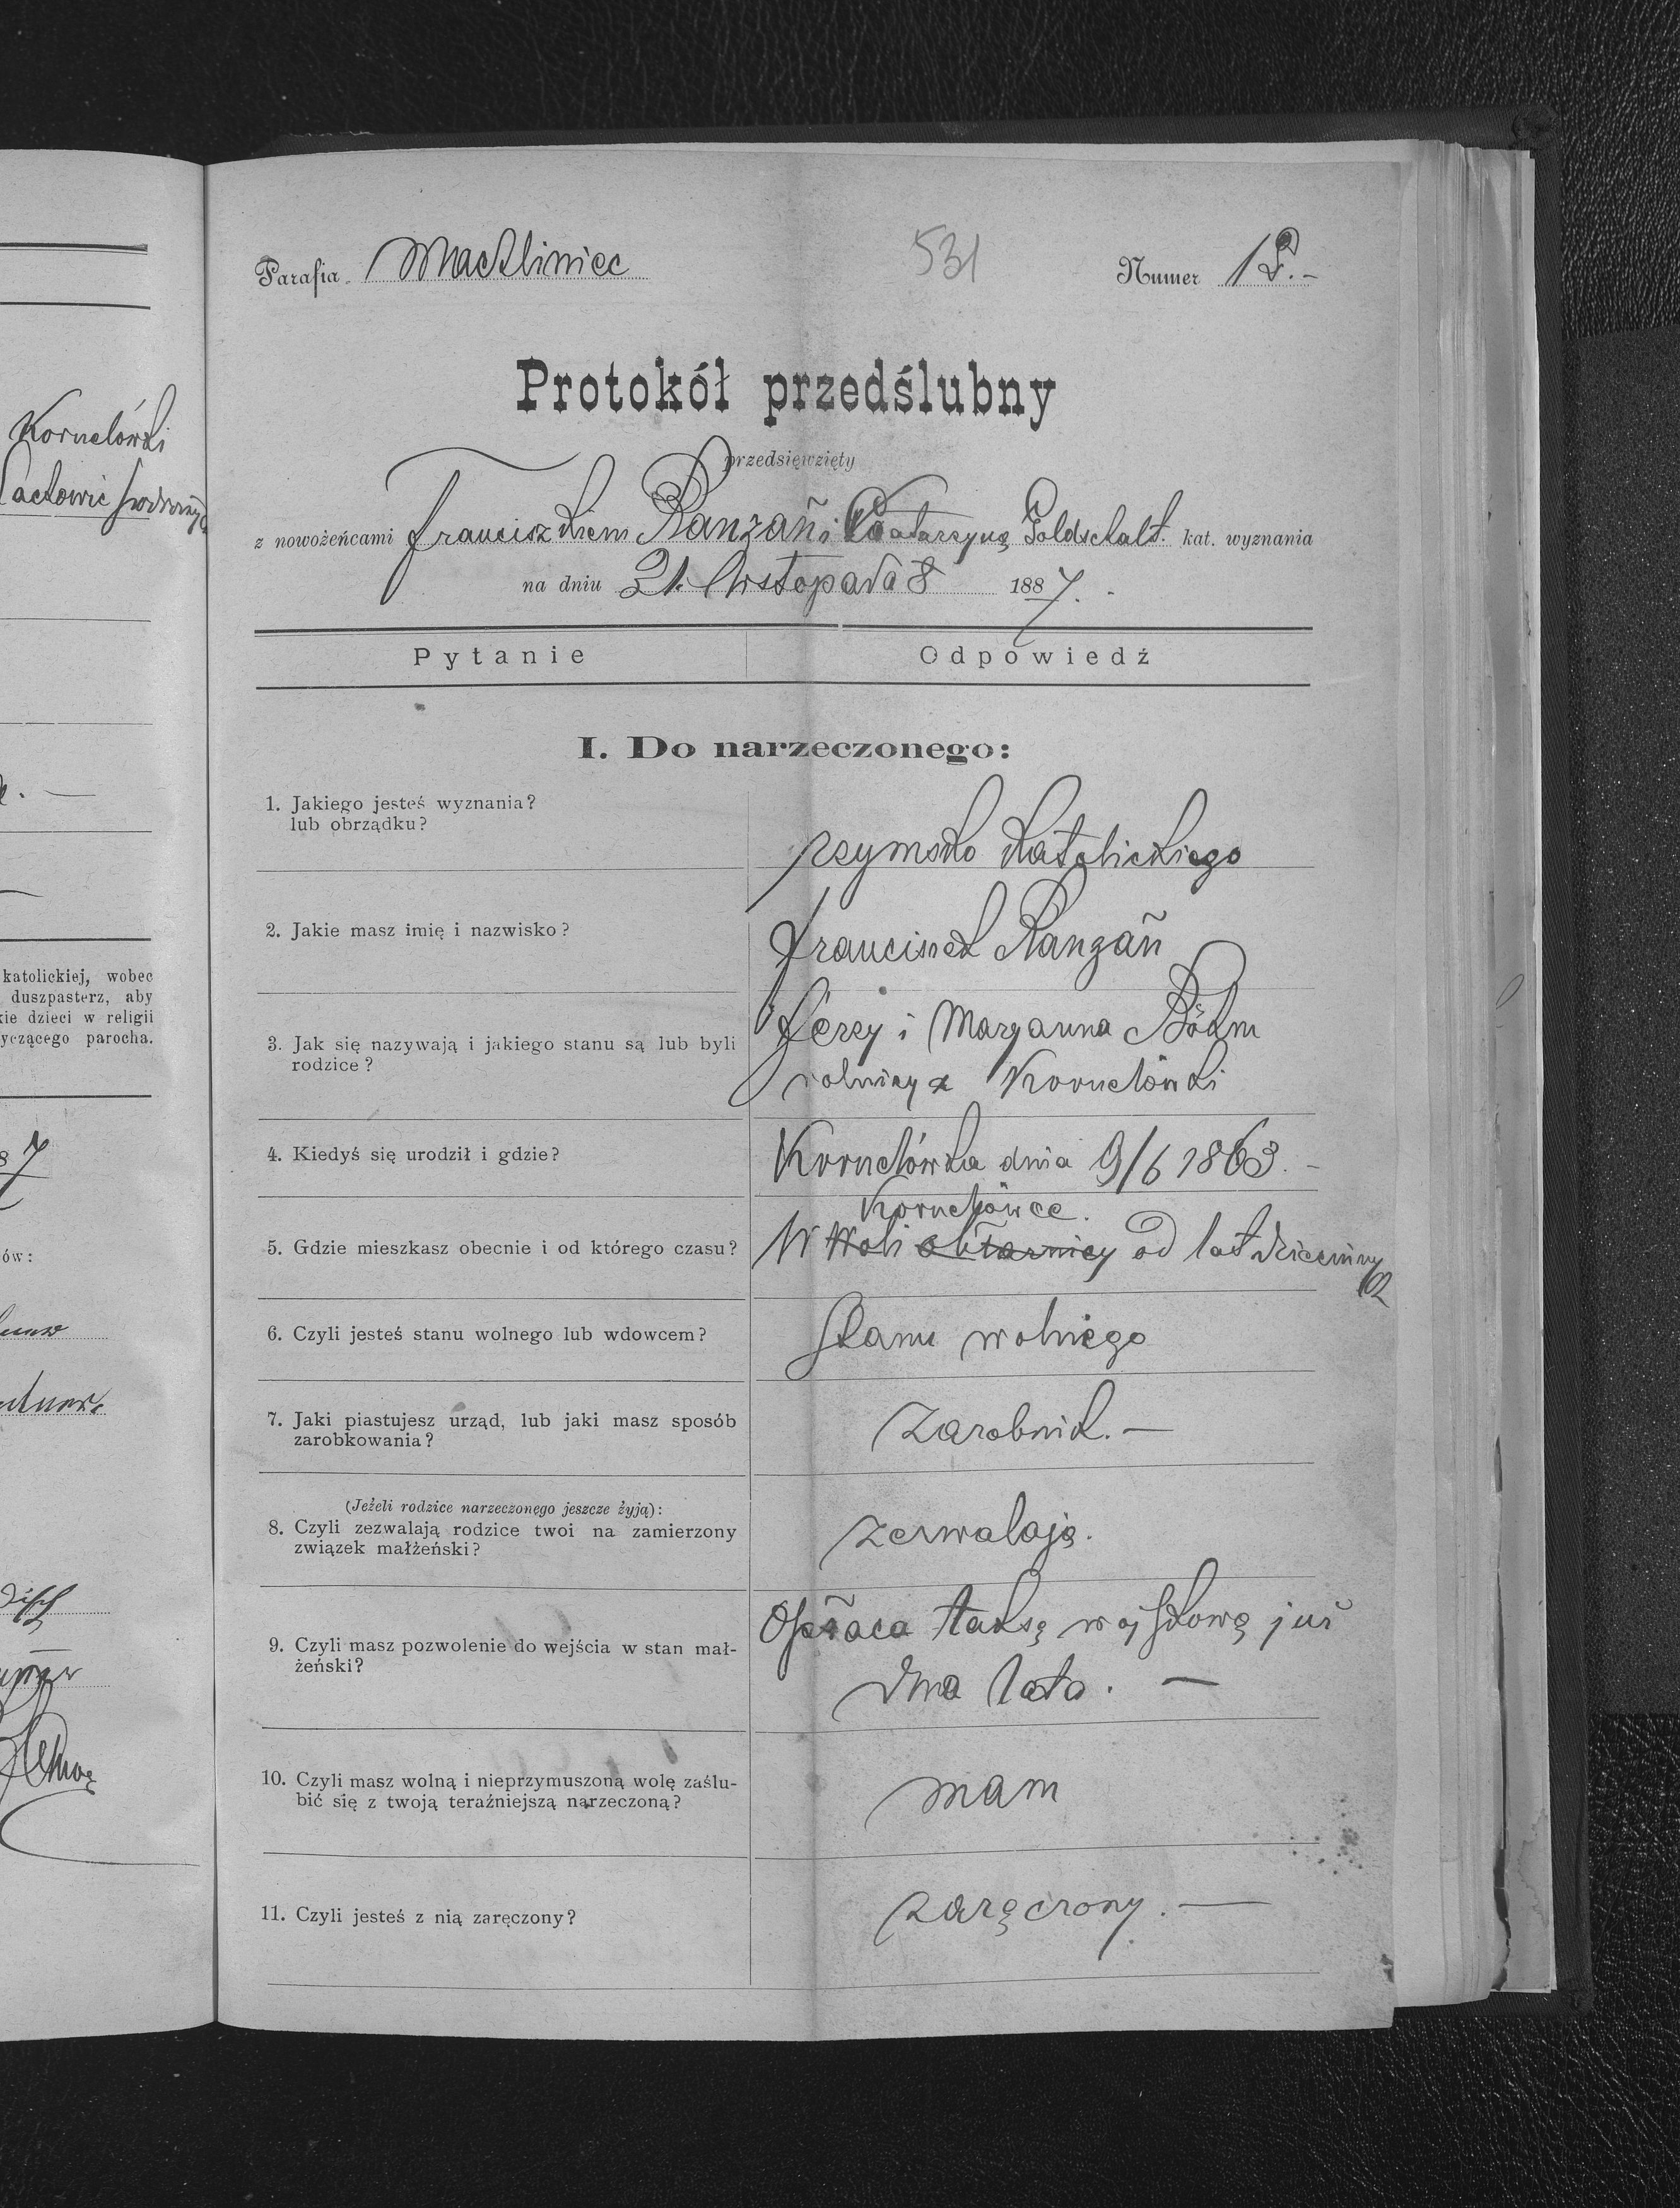 Kornelówki
katolickiej, wobec
duszpasterz, aby
kie dzieci w religii
yczącego parocha.
87
ów:
Parafia Machliniec 531 Numer 12.-
Protokół przedślubny
przedsięwzięty
z nowożeńcami Franciszkiem Ranzañ i Katarzyną Goldschalt. kat. wyznania
na dniu 21. listopada 8 1887.
Pytanie Odpowiedź
I. Do narzeczonego:
1. Jakiego jesteś wyznania?
lub obrządku?
rzymsko katolickiego
2. Jakie masz imię i nazwisko?
Franciszek Ranzañ
3. Jak się nazywają i jakiego stanu są lub byli
rodzice?
Jerzy i Maryanna Böhm
rolnicy z Kornelówki
4. Kiedyś się urodził i gdzie?
Kornelówka dnia 9/6 1863.-
5. Gdzie mieszkasz obecnie i od którego czasu?
Kornelówce.
W Woli obłaznicy od lat dziecinnych
6. Czyli jesteś stanu wolnego lub wdowcem?
Stanu wolnego
7. Jaki piastujesz urząd, lub jaki masz sposób
zarobkowania?
Zarobnik.—
(Jeżeli rodzice narzeczonego jeszcze żyją):
8. Czyli zezwalają rodzice twoi na zamierzony
związek małżeński?
zezwalają.
9. Czyli masz pozwolenie do wejścia w stan mał-
żeński?
Opłaca taksę wojskową już
dwa lata. —
10. Czyli masz wolną i nieprzymuszoną wolę zaślu-
bić się z twoją teraźniejszą narzeczoną?
mam
11. Czyli jesteś z nią zaręczony?
zaręczony.—